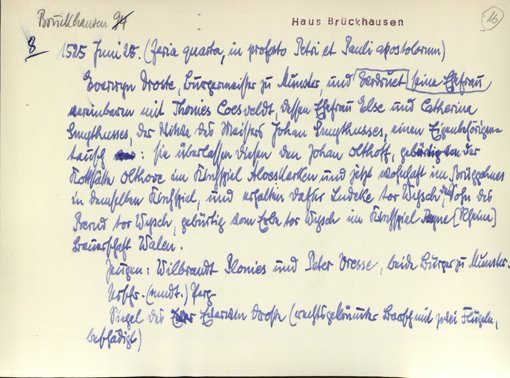 Brückhausen
Haus Brückhausen
16
8 1525 Juni 28. (feria quarta, in profesto Petri et Pauli apostolorum)
Everwyn Droste, Bürgermeister zu Münster, und Gerdruet seine Ehefrau
vereinbaren mit Thonies Coesveldt, dessen Ehefrau Else und Catharina
der Witwe des Meisters Johan einen Eigenbehörigen-
tausch : sie überlassen diesen den Johan Olthoff, gebürtig von der
Kottstätte Olthove im Kirchspiel und jetzt wohnhaft im
in demselben Kirchspiel, und erhalten dafür Lutteke tor Wysch, Sohn des
Bernd tor Wysch, gebürtig vom Erbe tor Wysch im Kirchspiel Reyne [Rheine]
Bauerschaft Walen.
Zeugen: Wilbrandt Plonies und Peter Vresse, beide Bürger zu Münster.
Abschr. (mndt.) Perg.
Siegel des Everwin Droste (rechtsgelehnter mit zwei Flügeln,
beschädigt)